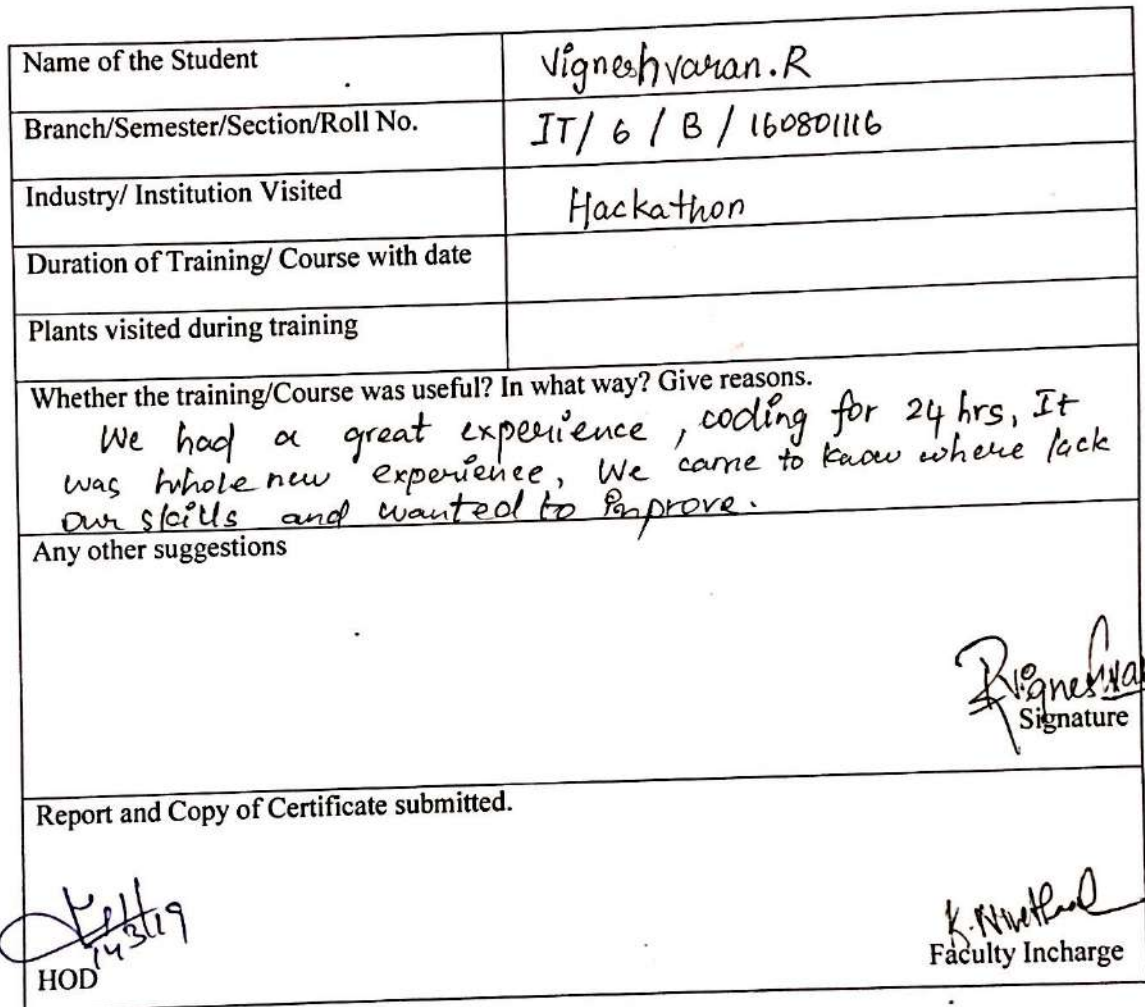 Name of the Student Vigneshvaran.R
Branch/Semester/Section/Roll No. IT/ 6 / B / 160801116
Industry/ Institution Visited Hackathon
Duration of Training/ Course with date
Plants visited during training
Whether the training/Course was useful? In what way? Give reasons.
We had a great experience, coding for 24 hrs, It
was whole new experience, We came to know where lack
our skills and wanted to improve.
Any other suggestions
R Vigneshva
Signature
Report and Copy of Certificate submitted.
14/3/19
K. Nivetha
HOD Faculty Incharge